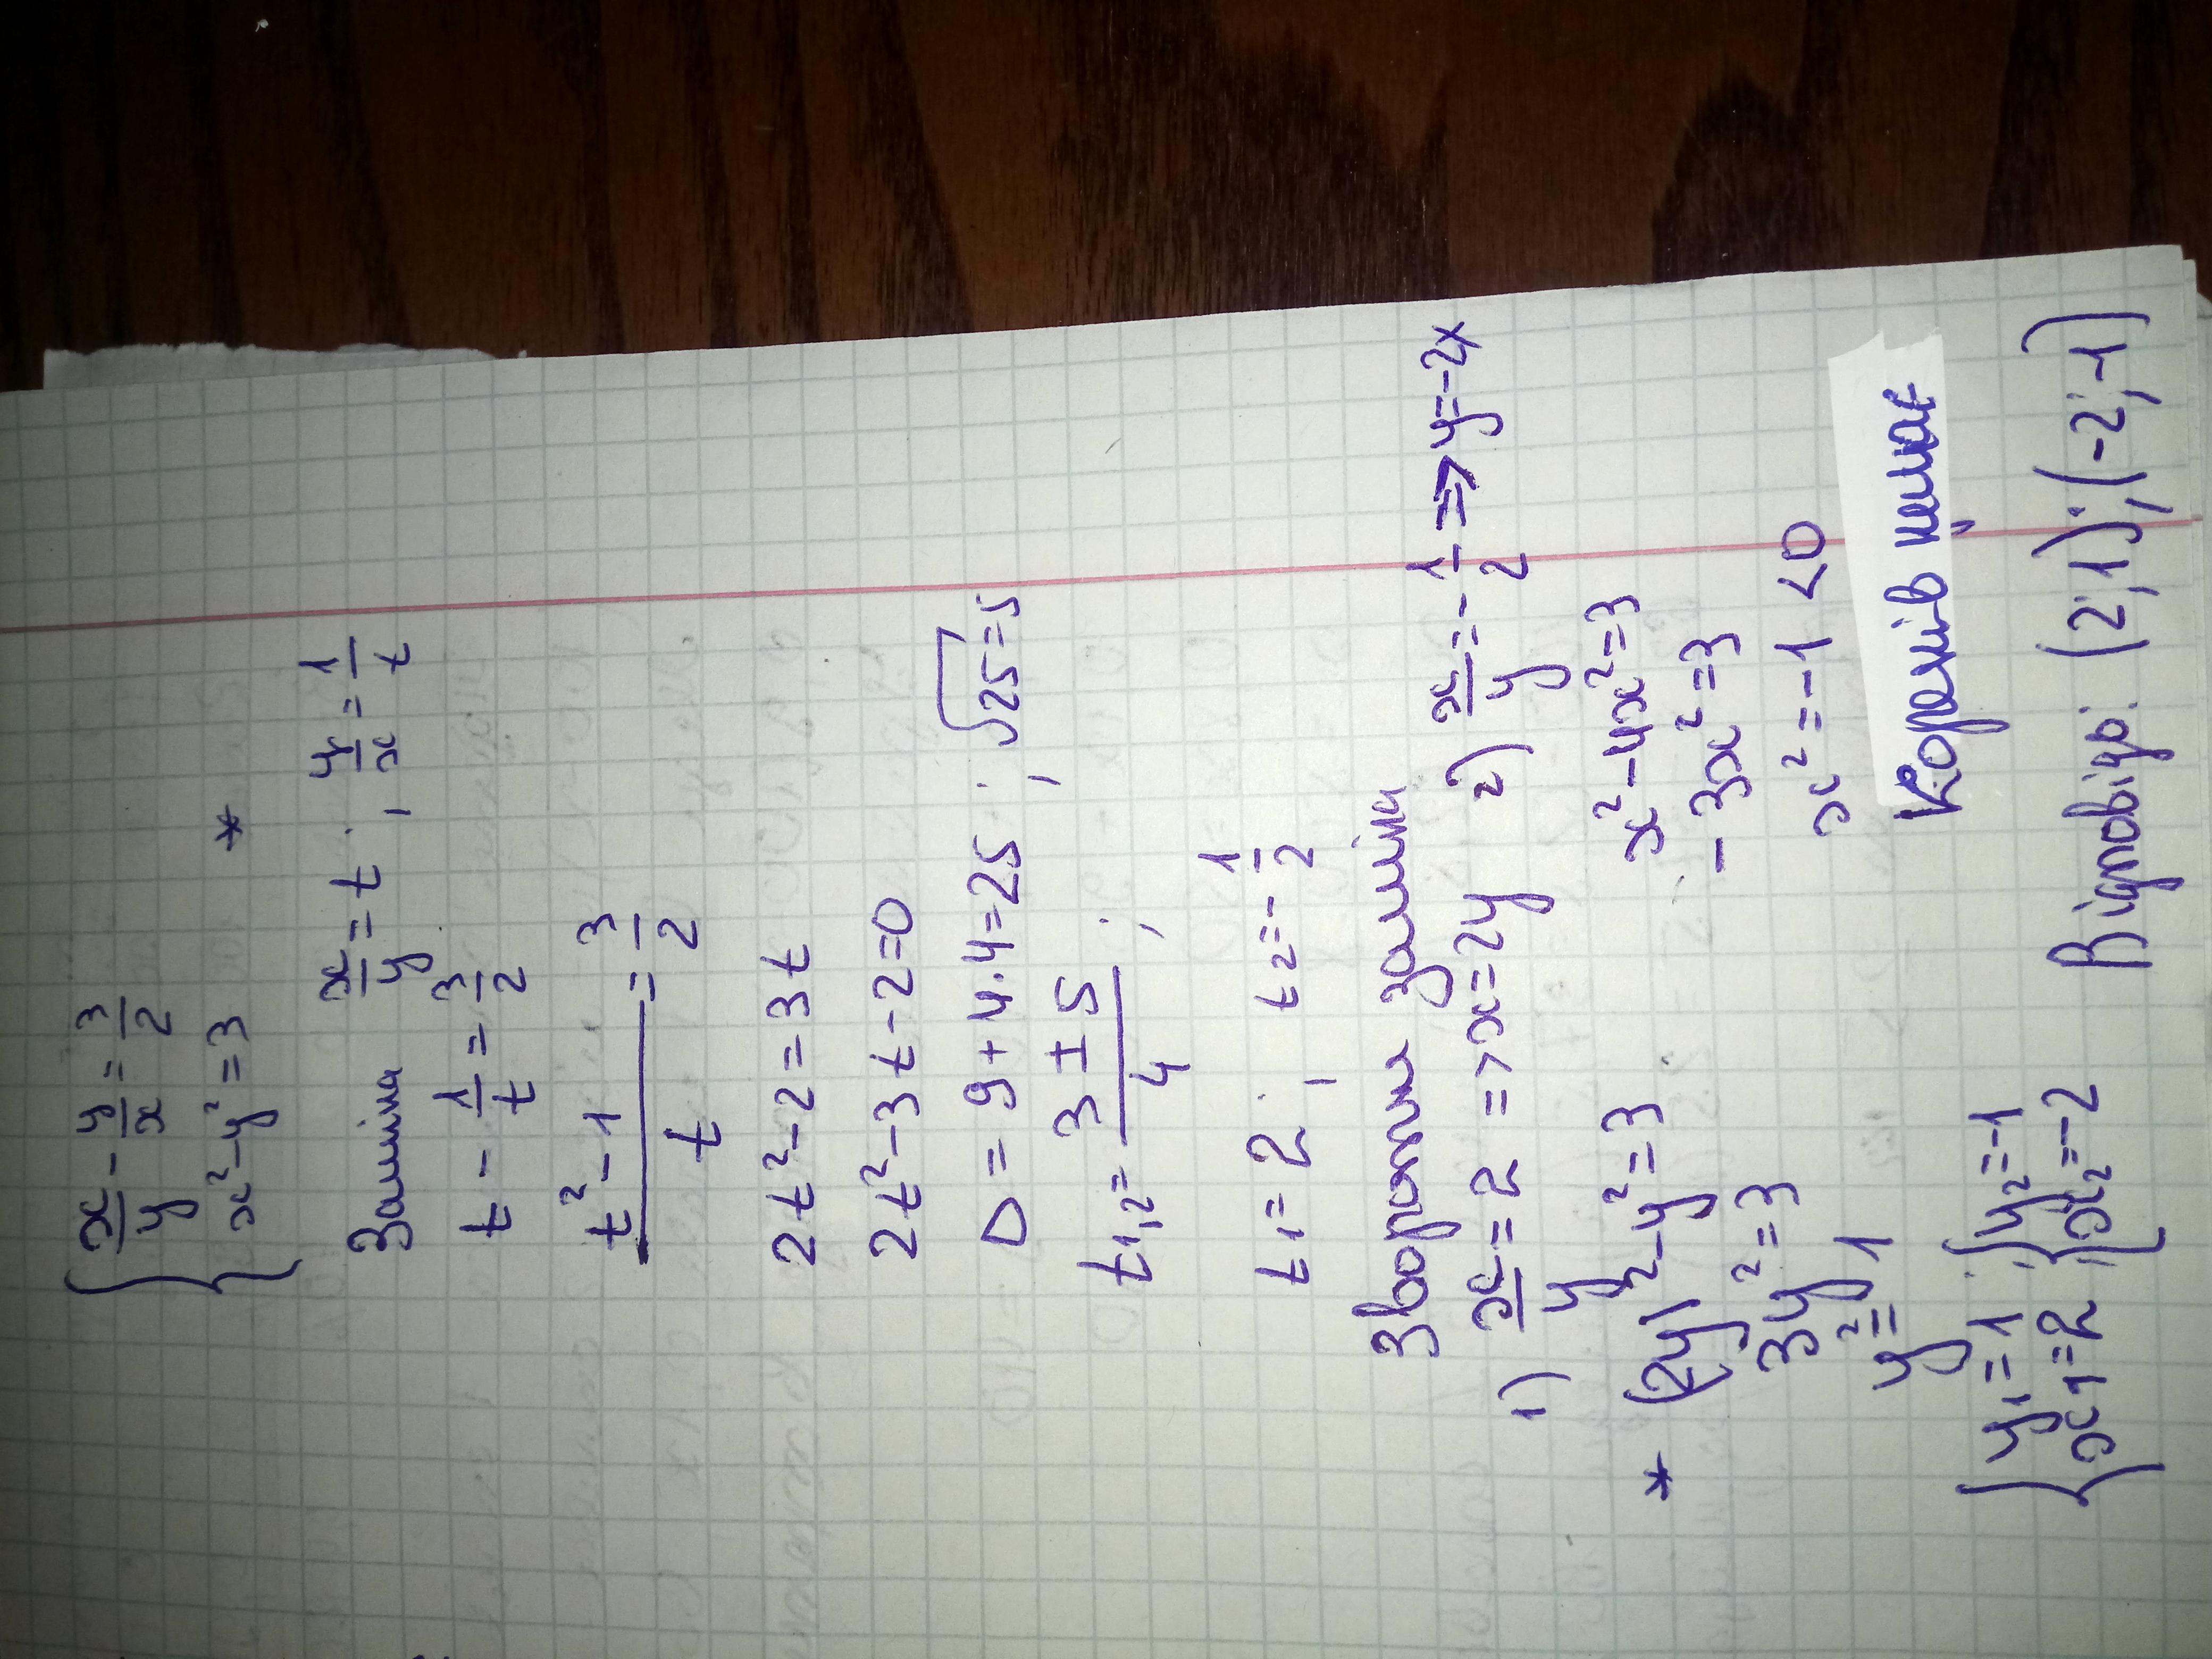 { x/y - y/x = 3/2
x² - y² = 3 *
Заміна x/y = t ; y/x = 1/t
t - 1/t = 3/2
(t² - 1)/t = 3/2
2t² - 2 = 3t
2t² - 3t - 2 = 0
D = 9 + 4·4 = 25 ; √25 = 5
t₁,₂ = (3 ± 5)/4 ;
t₁ = 2 ; t₂ = -1/2
Зворотня заміна
1) x/y = 2 => x = 2y
* (2y)² - y² = 3
3y² = 3
y² = 1
{ y₁ = 1 ; { y₂ = -1
x₁ = 2 ; x₂ = -2
2) x/y = -1/2 => y = -2x
x² - 4x² = 3
-3x² = 3
x² = -1 < 0
Коренів немає
Відповідь: (2;1);(-2;-1)